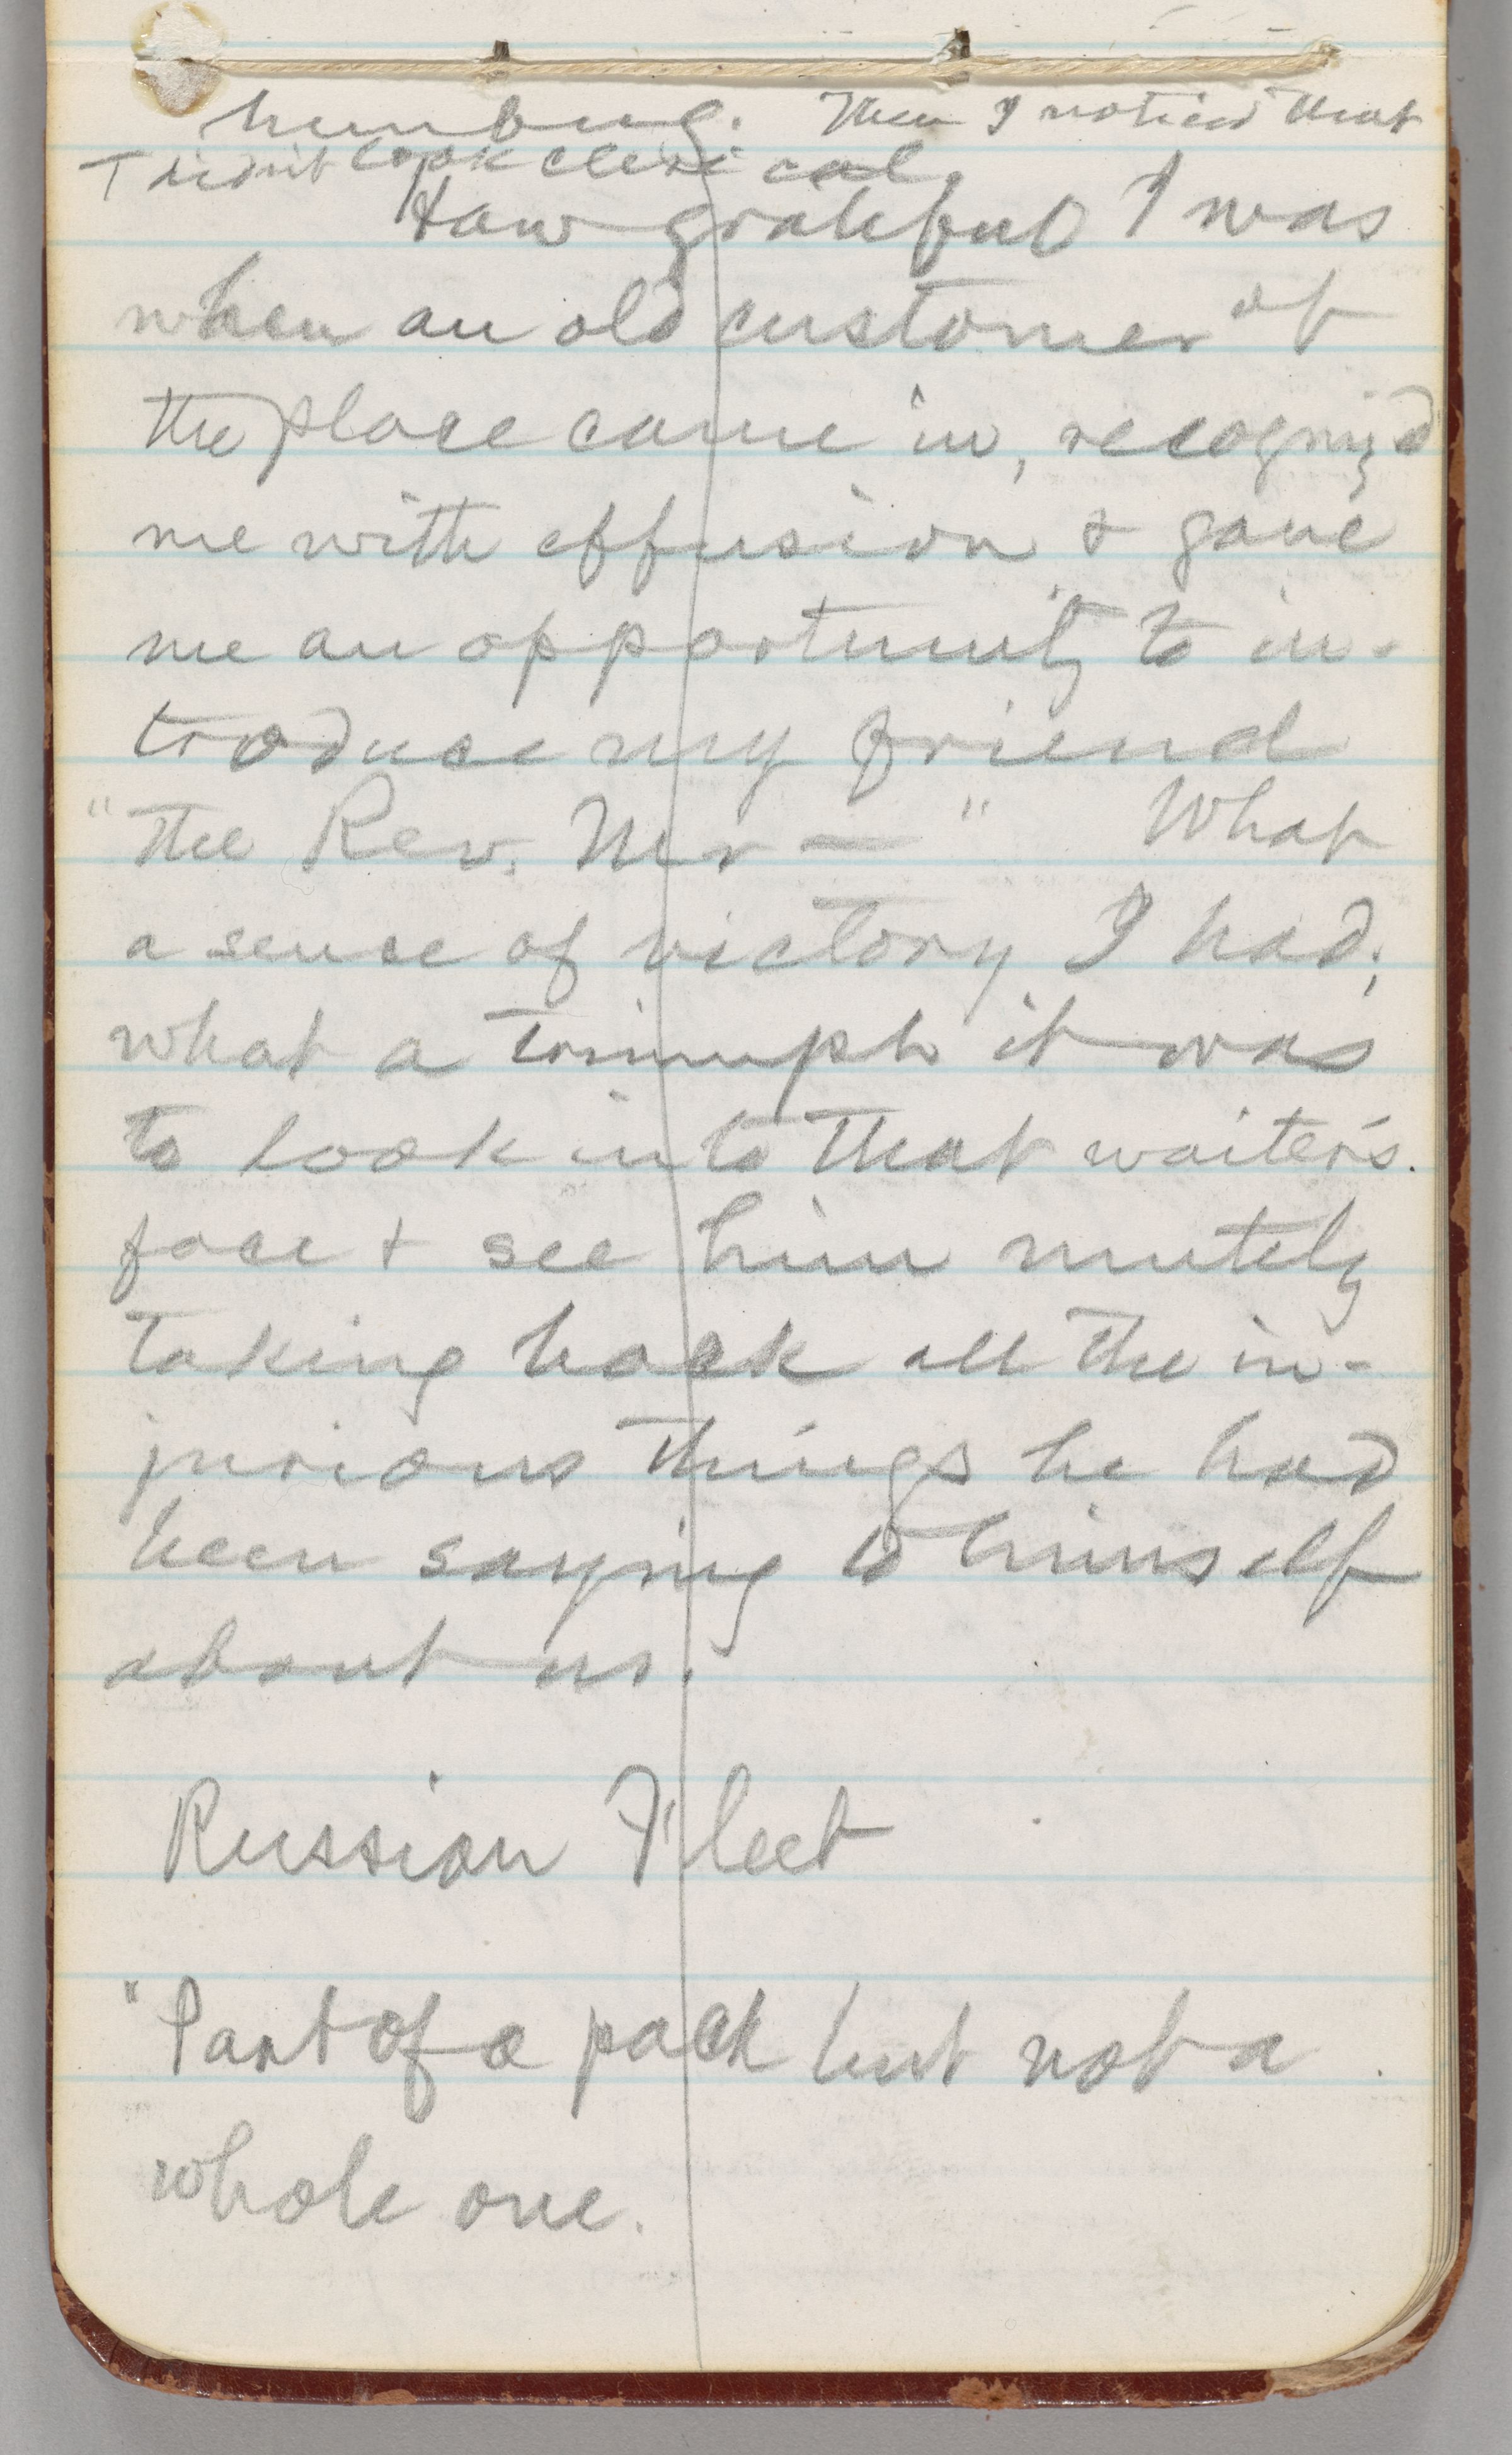 humbug. Then I noticed that
I didn't look clerical.
How grateful I was
when an old customer of
the place came in, recogniz'd
me with effusion & gave
me an opportunity to in-
troduce my friend
"the Rev. Mr — " What
a sense of victory I had;
what a triumph it was
to look into that waiter's
face & see him mutely
taking back all the in-
jurious things he had
been saying to himself
about us.
Russian Fleet
"Part of a pack but not a
whole one.